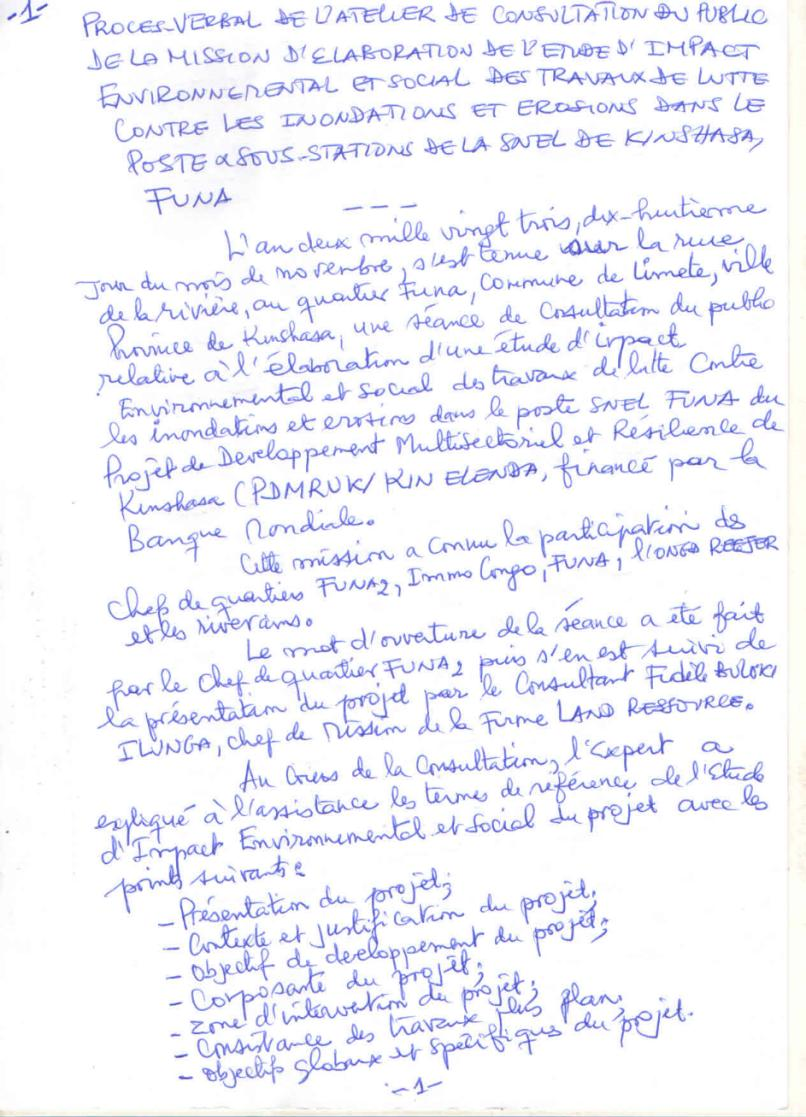 -1-
PROCES-VERBAL DE L'ATELIER DE CONSULTATION DU PUBLIC
DE LA MISSION D'ELABORATION DE L'ETUDE D'IMPACT
ENVIRONNEMENTAL ET SOCIAL DES TRAVAUX DE LUTTE
CONTRE LES INONDATIONS ET EROSIONS DANS LE
POSTE & SOUS-STATIONS DE LA SNEL DE KINSHASA,
FUNA
---
L'an deux mille vingt trois, dix-huitième
Jour du mois de novembre, s'est tenue sur la rue
de la rivière, au quartier Funa, Commune de Limete, ville
Province de Kinshasa, une séance de Consultation du public
relative à l'élaboration d'une étude d'impact
Environnemental et Social des travaux de lutte Contre
les inondations et erosions dans le poste SNEL FUNA du
Projet de Developpement Multisectoriel et Résilience de
Kinshasa (PDMRUK/ KIN ELENDA, financé par la
Banque Mondiale.
Cette mission a connu la participation de
Chefs de quartiers FUNA2, Immo Congo, FUNA, l'ONGD REEJER
et les riverains.
Le mot d'ouverture de la séance a été fait
par le Chef de quartier FUNA2 puis s'en est suivi de
la présentation du projet par le Consultant Fidèle BULOKI
ILUNGA, chef de Mission de la Firme LAND RESSOURCE.
Au Cours de la Consultation, l'Expert a
expliqué à l'assistance les termes de référence de l'Etude
d'Impact Environnemental et Social du projet avec les
points suivants :
- Présentation du projet;
- Contexte et justification du projet;
- Objectif de developpement du projet;
- Composante du projet;
- Zone d'intervention du projet;
- Consistance des travaux plus plan;
- Objectifs globaux et spécifiques du projet.
-1-